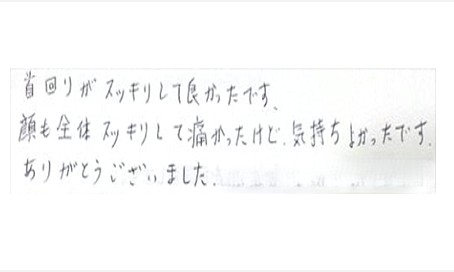 首回りがスッキリして良かったです、
顔も全体スッキリして痛かったけど、気持ちよかったです。
ありがとうございました。